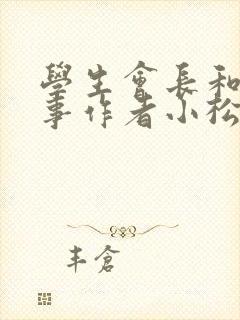 學生會長和
事作者小松
丰倉